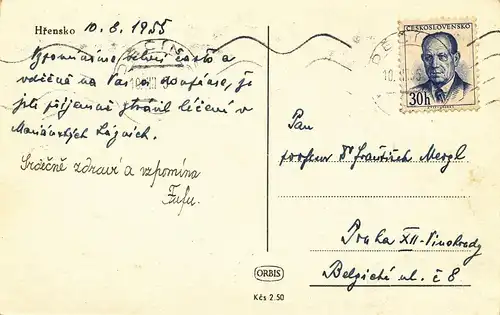 Hřensko 10.8.1955
Vzpomínáme velmi často a
vděčně na Vás a doufáme, že
jste příjemně strávil léčení v
Mariánských Lázních.
Srdečně zdraví a vzpomíná
Fufu.
ČESKOSLOVENSKO
30h
DĚČÍN
Pan
profesor Dr František Mergl
Praha XII-Vinohrady
Belgická ul. č 8
ORBIS
Kčs 2.50